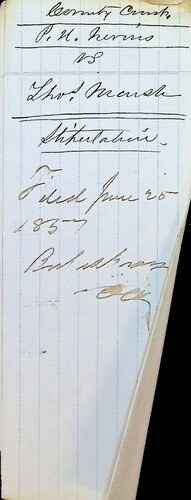 County Court
P. H. Nevins
vs
Thos. Marsh
Stipulation.
Filed June 25
1857